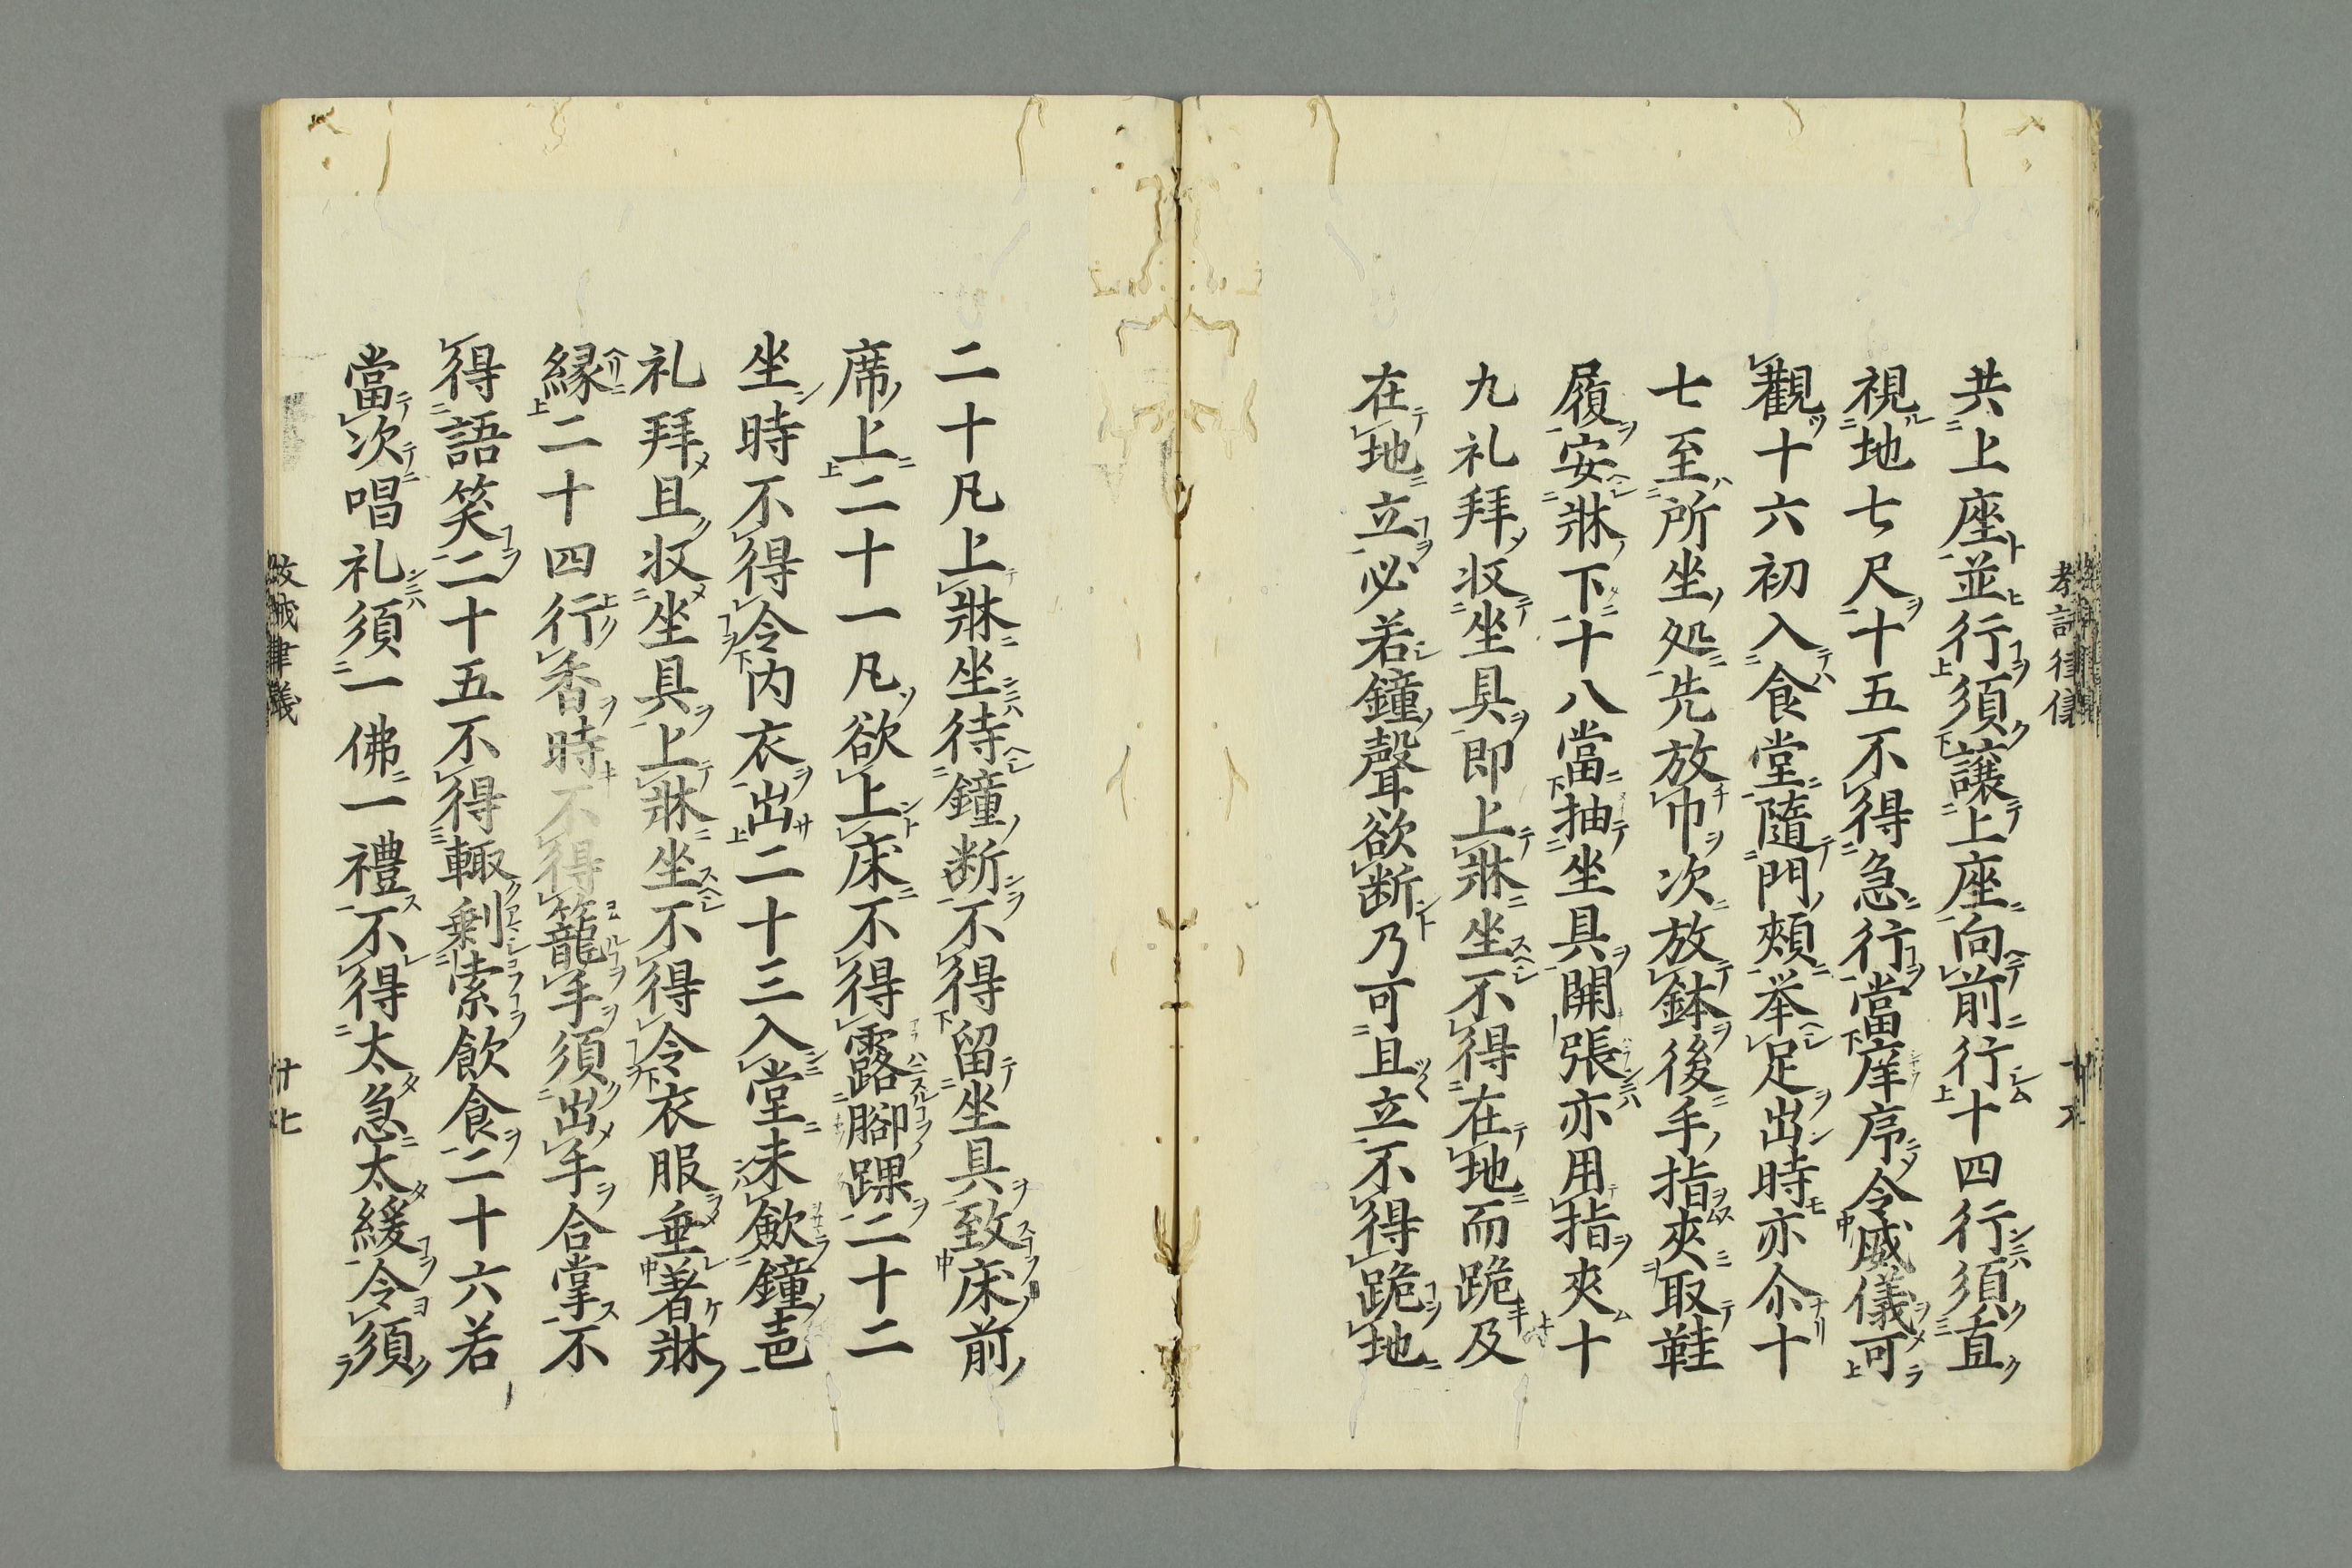 共上座並行須讓上座向前行十四行須直
視地七尺十五不得急行當庠序令威儀可
觀十六初入食堂隨門頰举足出時亦尒十
七至所坐処先放巾次放鉢後手指夾取鞋
履安牀下十八當抽坐具開張亦用指夾十
九礼拜収坐具即上牀坐不得在地而跪及
在地立必若鐘聲欲断乃可且立不得跪地
二十凡上牀坐待鐘断不得留坐具致床前
席上二十一凡欲上床不得露腳踝二十二
坐時不得令内衣出二十三入堂未歛鐘𠮷
礼拜且収坐具上牀坐不得令衣服垂著牀
縁二十四行香時不得籠手須出手合掌不
得語笑二十五不得輙剰索飲食二十六若
當次唱礼須一佛一禮不得太急太緩令須